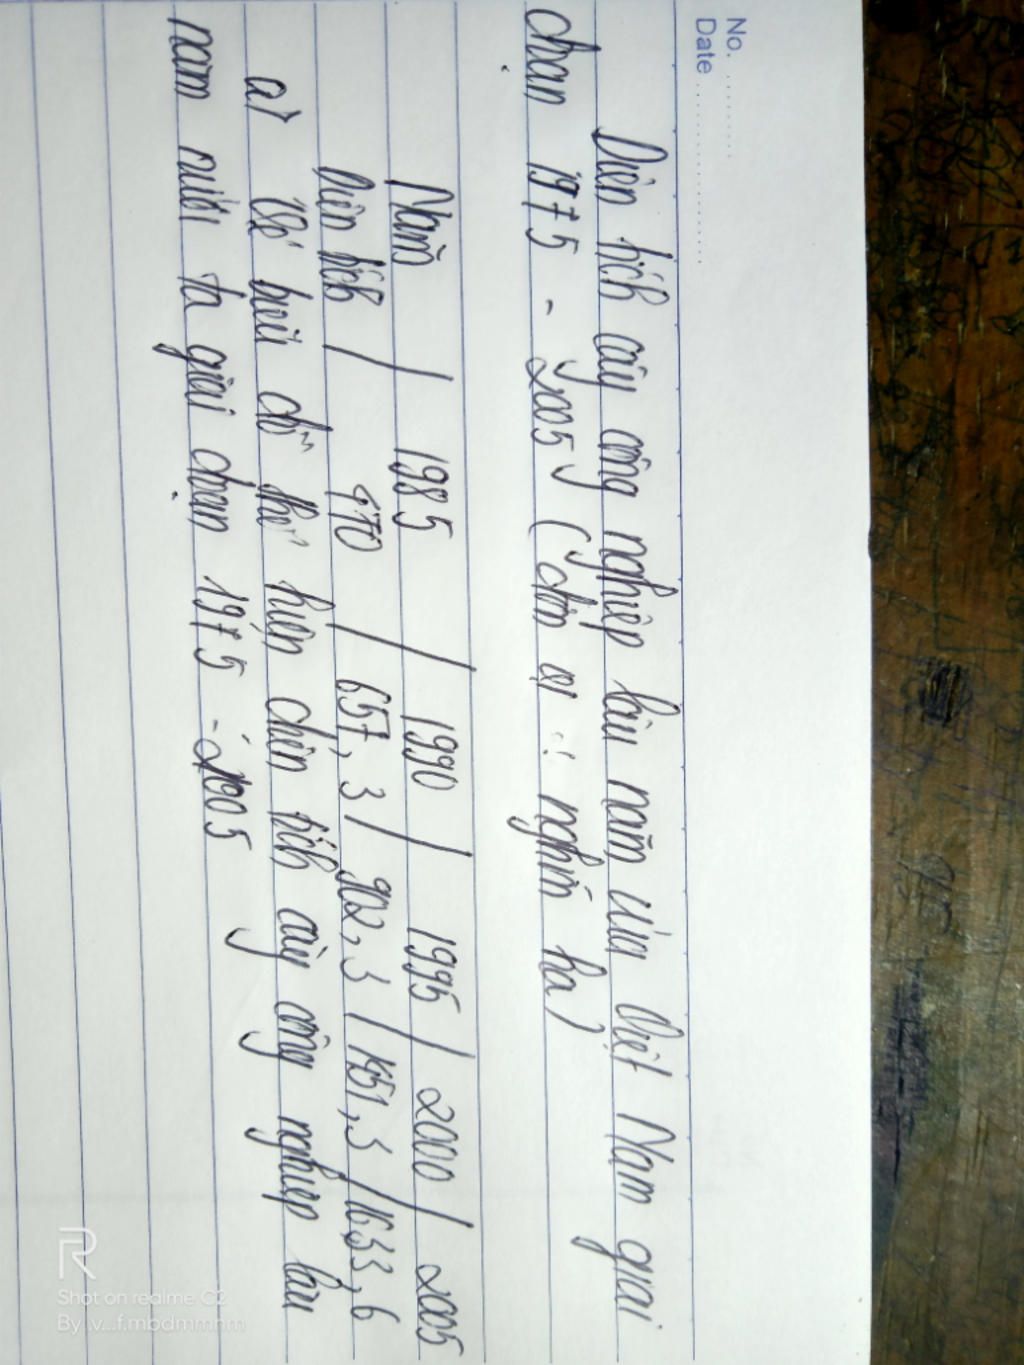 No. ............
Date ........................
Diện tích cây công nghiệp lâu năm của Việt Nam giai
đoạn 1975 - 2005 (đơn vị : nghìn ha)
Năm | 1985 | 1990 | 1995 | 2000 | 2005
Diện tích | 470 | 657,3 | 902,3 | 1451,3 | 1633,6
a) Vẽ biểu đồ thể hiện diện tích cây công nghiệp lâu
năm nước ta giai đoạn 1975 - 2005
Shot on realme C2
By